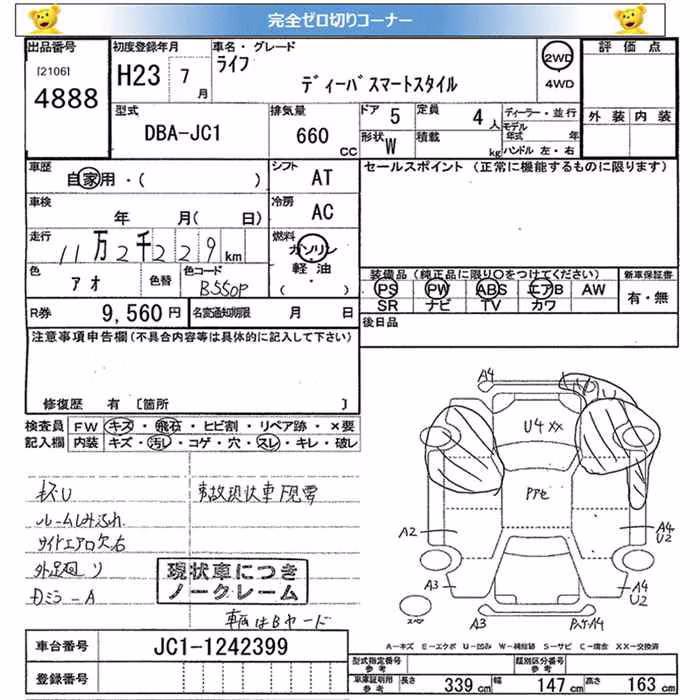 完全ゼロ切りコーナー
出品番号 初度登録年月 車名・グレード 評価点
[2106] 4888 H23 7月 ライフ ディーバスマートスタイル 2WD 4WD
型式 排気量 ドア 5 定員 4人 ディーラー・並行 外装 内装
DBA-JC1 660 CC 形状 W 積載 kg モデル年式 年 ハンドル 左・右
車歴 シフト セールスポイント (正常に機能するものに限ります)
自家用・( ) AT
車検 冷房
年 月( 日) AC
走行 燃料
11万2千229km ガソリン 軽油 ( )
色 アオ 色替 色コード B550P
装備品 (純正品に限り○をつけてください) 新車保証書
PS PW ABS エアB AW 有・無
SR ナビ TV カワ
R券 9,560円 名変通知期限 月 日
後日品
注意事項申告欄(不具合内容等は具体的に記入して下さい)
修復歴 有 [箇所 ]
検査員 FW キズ・飛石・ヒビ割・リペア跡・×要
記入欄 内装 キズ・汚レ・コゲ・穴・スレ・キレ・破レ
キズU 事故現状車現要
ルームしみ汚れ
サイドエアロ欠右
外足廻り
Dミラ-A
現状車につき
ノークレーム
車両はBヤード
A4
U4 XX
Pアセ
A2 A4 U2
A3 A4 U2
スペア A3 A4
A-キズ E-エクボ U-凹み W-補修跡 S-サビ C-腐食 XX-交換済
車台番号 JC1-1242399
登録番号
型式指定番号 参考 類別区分番号 参考
車庫証明用 参考 長さ 339cm 幅 147cm 高さ 163cm